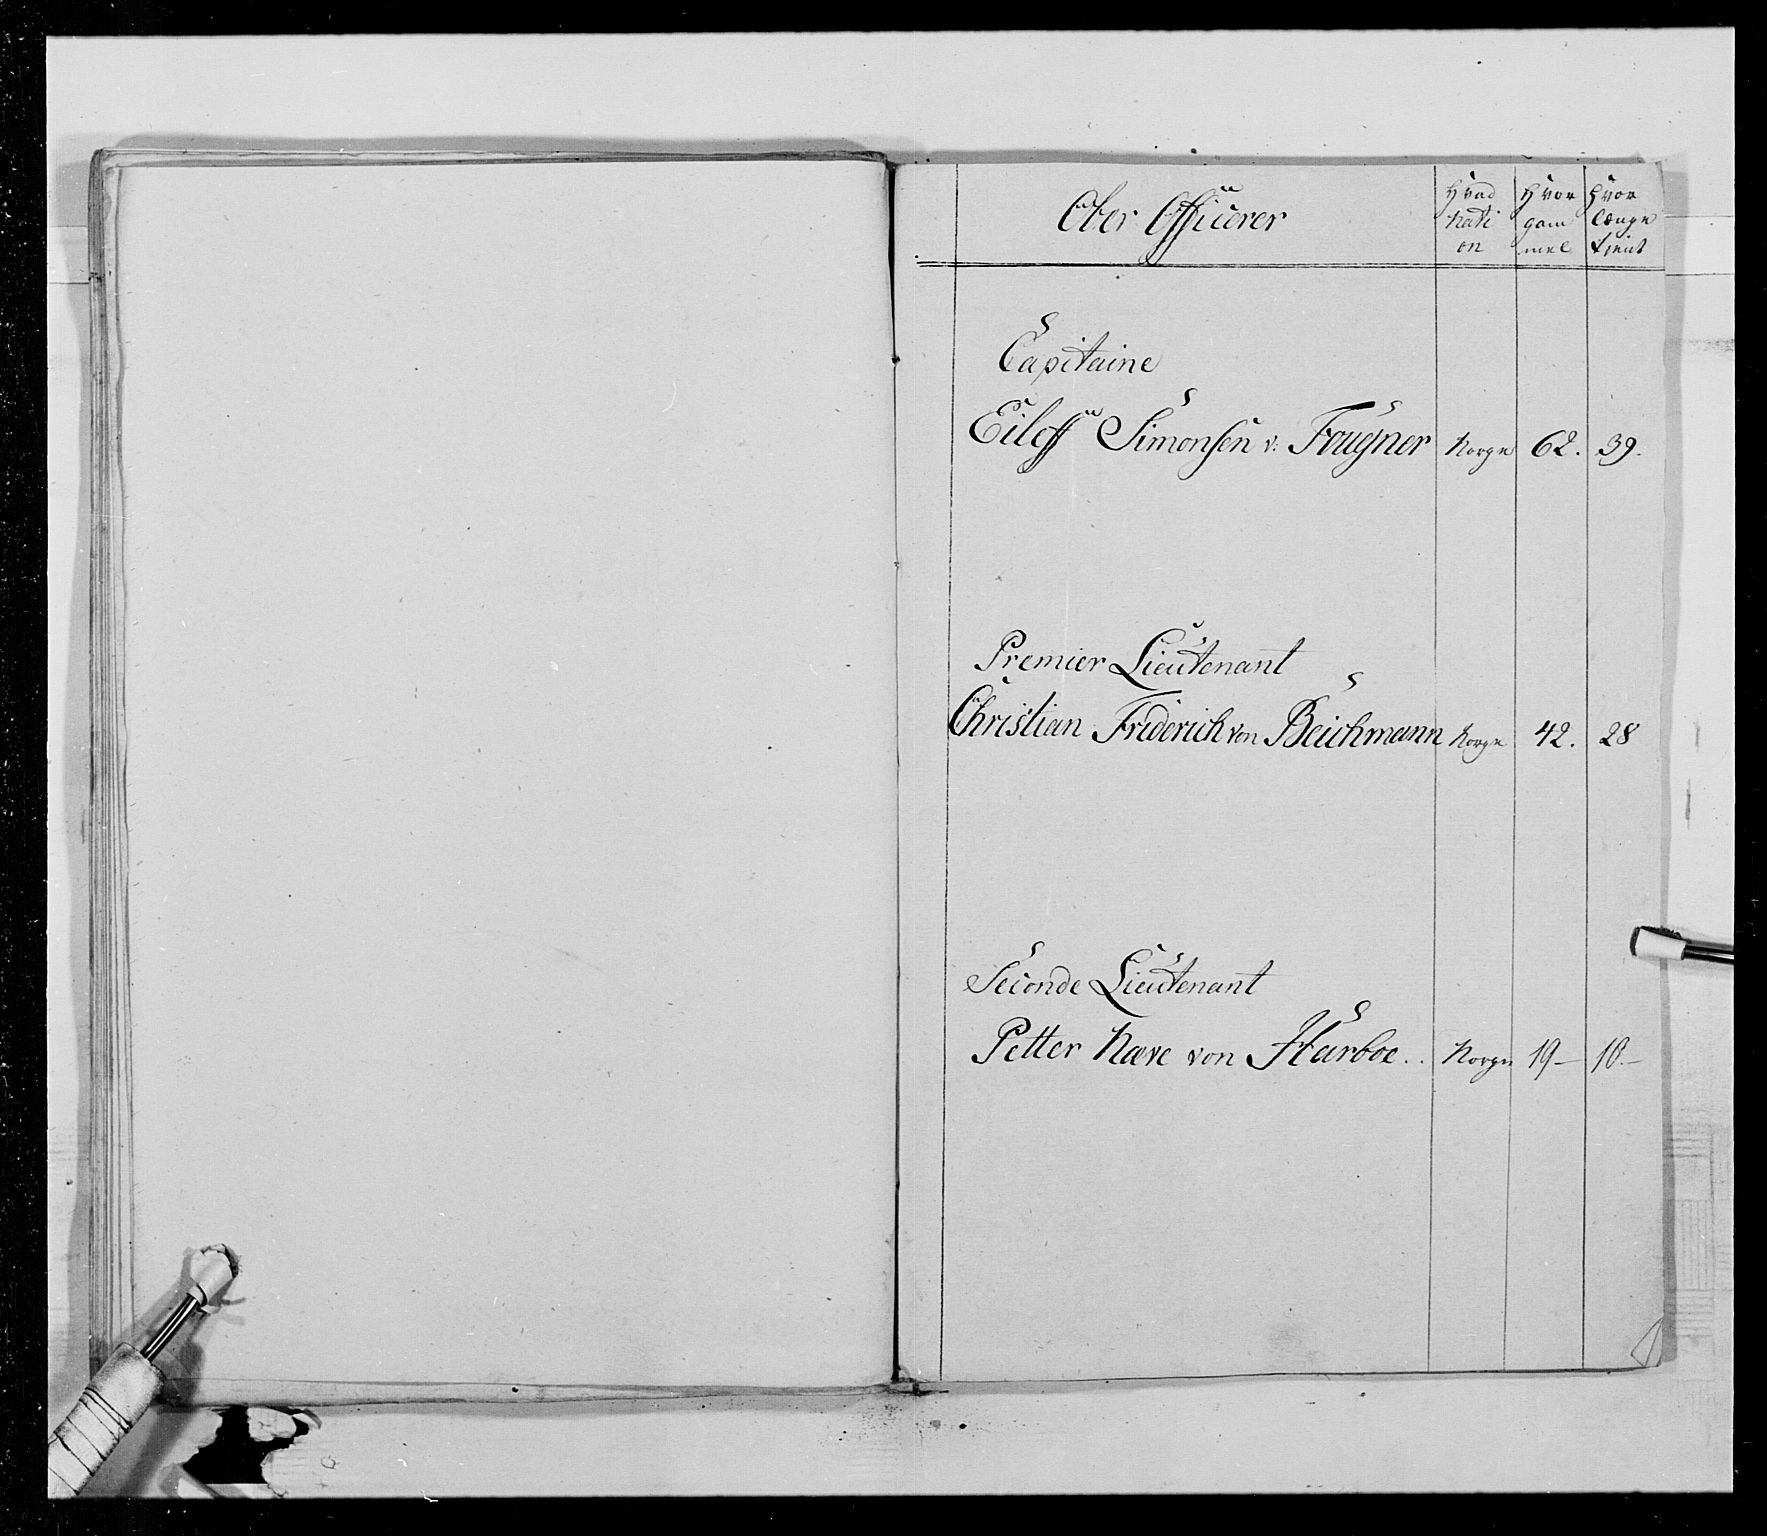 Ober Officerer
Hvad Nati on
Hvor gam mel
Hvor længe tient
Capitaine
Eiloff Simonsen v: Fougner Norge 62. 39.
Premier Lieutenant
Christian Friderich von Beichmann Norge 42. 28
Seconde Lieutenant
Petter Næve von Harboe.. Norge 19–